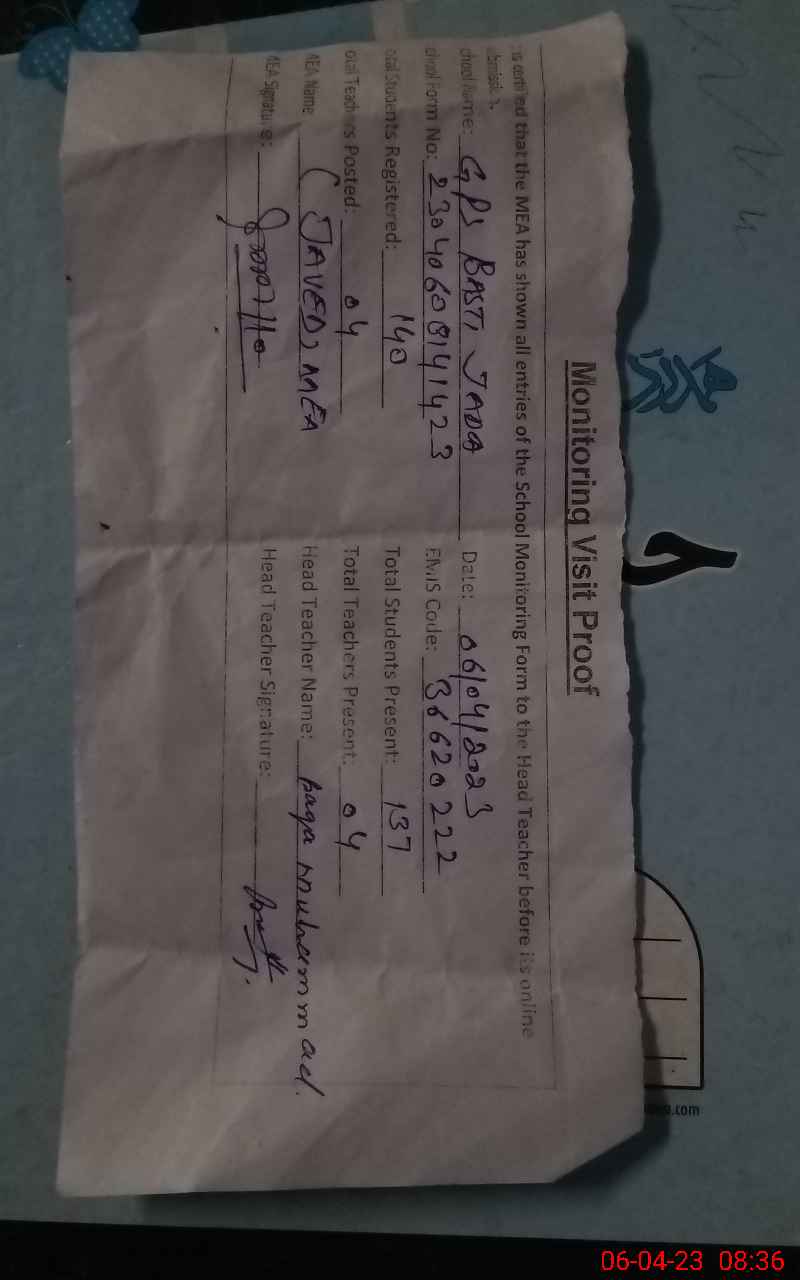 Monitoring Visit Proof
is certified that the MEA has shown all entries of the School Monitoring Form to the Head Teacher before its online
bmission.
chool Name: GPS BASTI JADA Date: 06/04/2023
chool Form No: 2304060814 1423 EMIS Code: 36620222
otal Students Registered: 140 Total Students Present: 137
otal Teachers Posted: 04 Total Teachers Present: 04
MEA Name (JAVED) MEA Head Teacher Name: Raga Muhammad.
MEA Signature: Head Teacher Signature:
.com
06-04-23 08:36